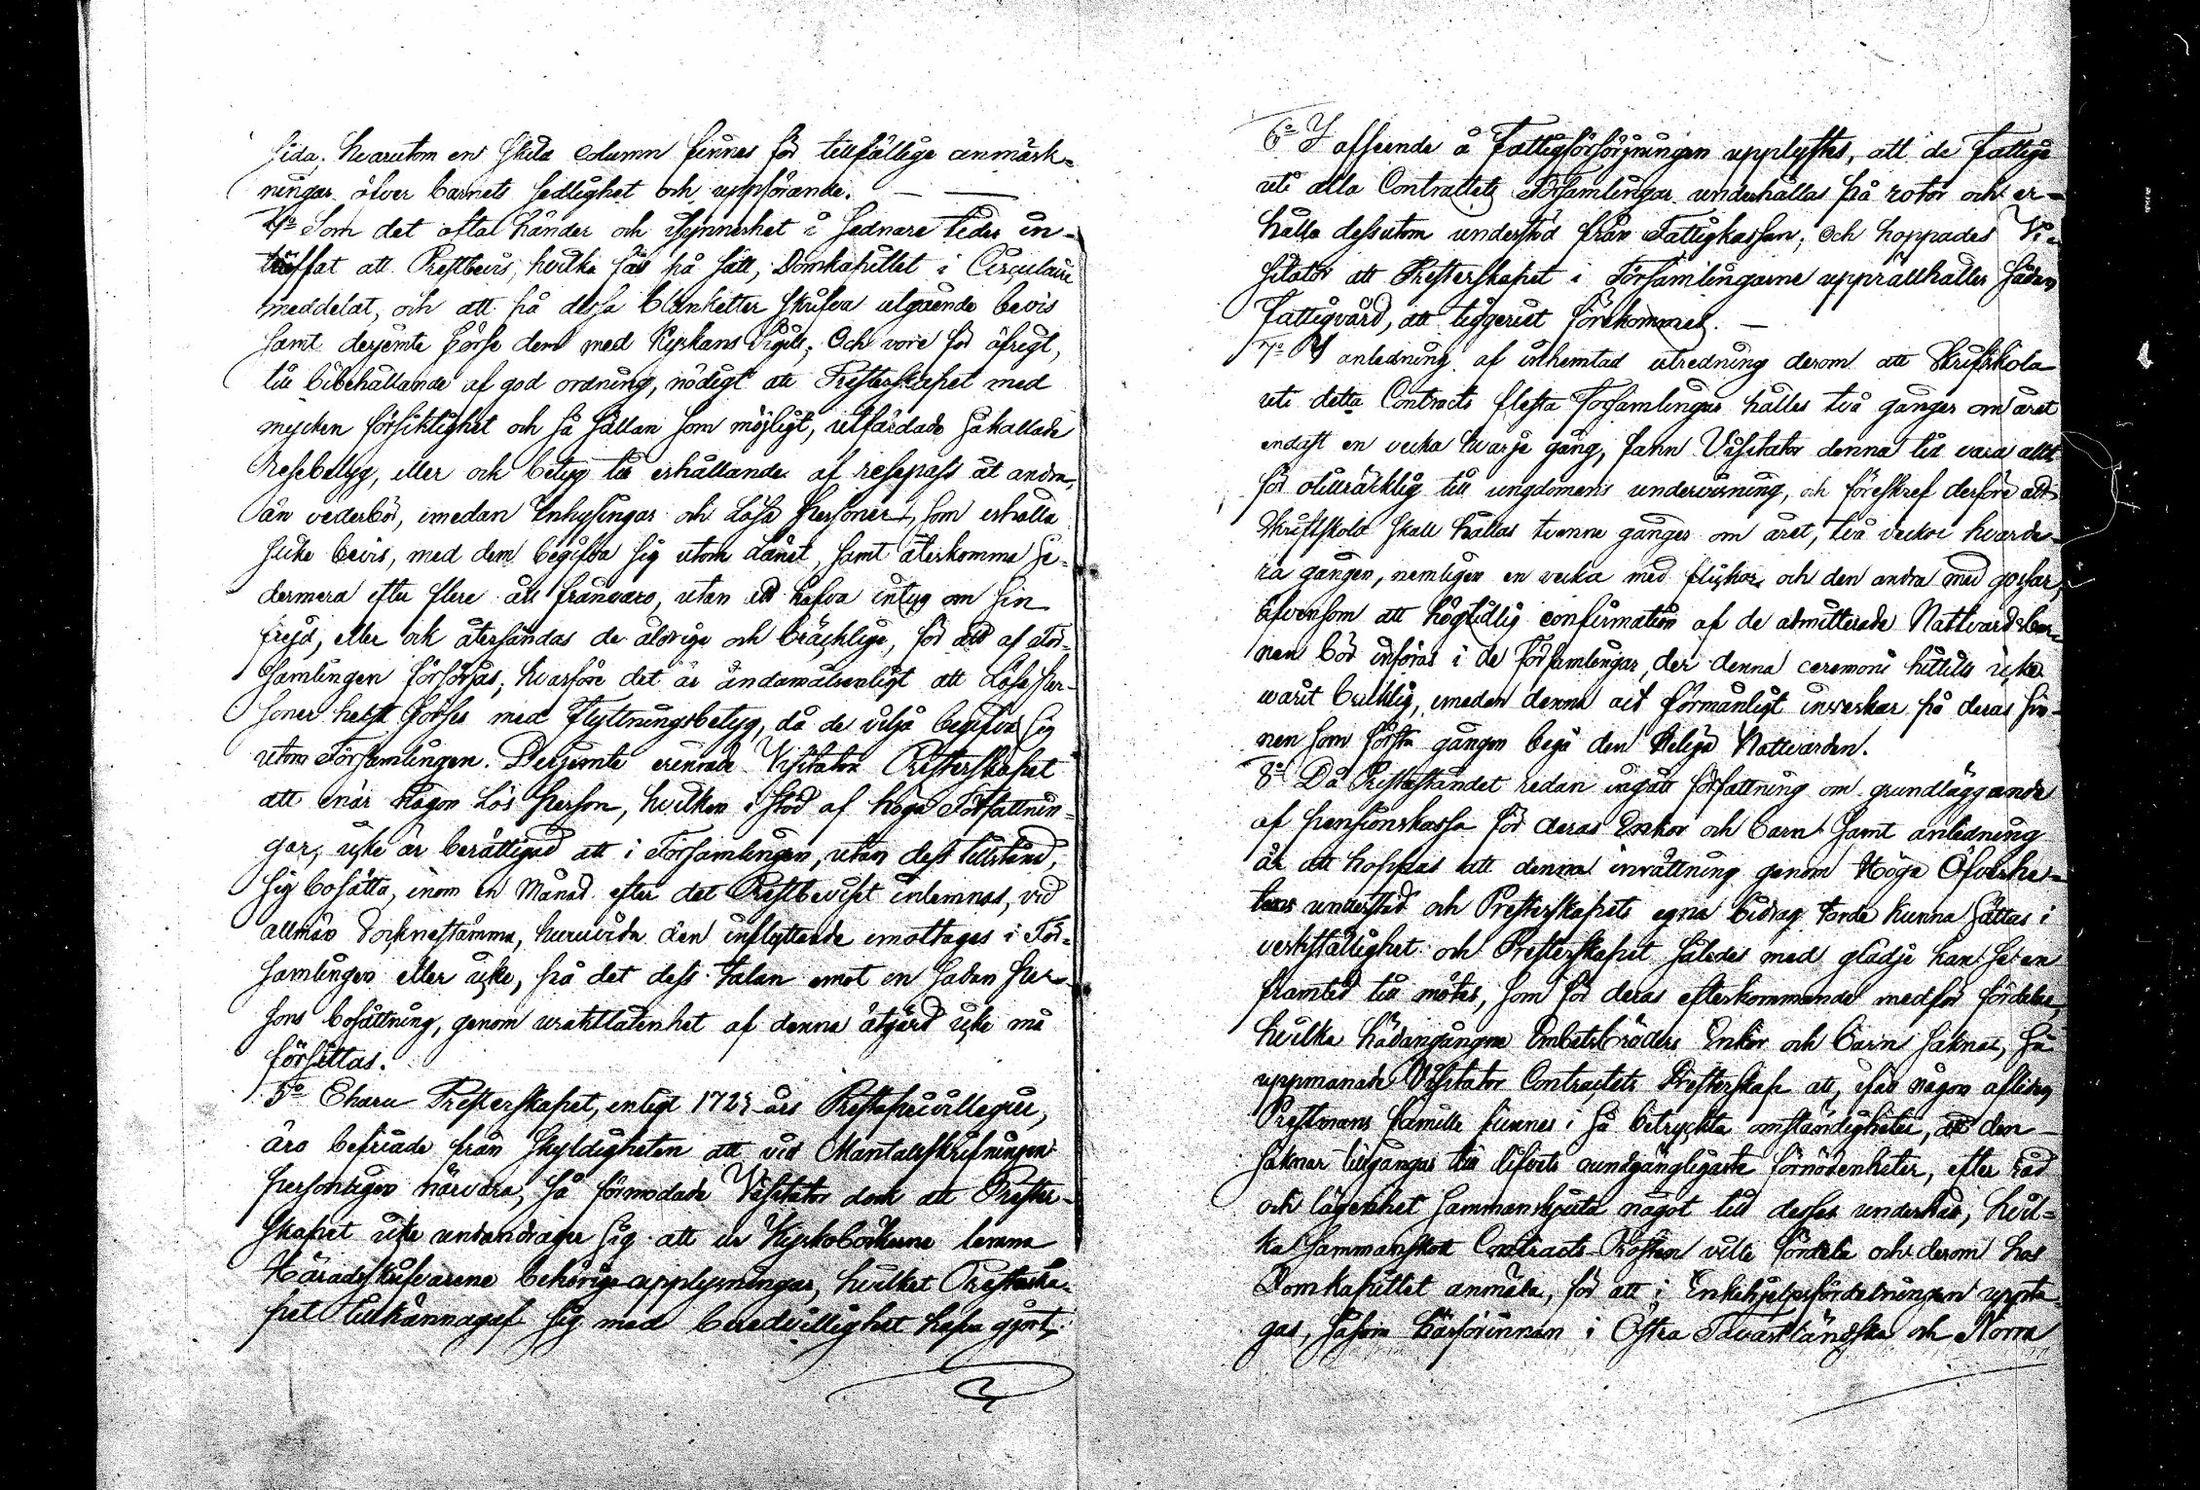 sida. hvarutom en skild column finnes för tillfällige anmärk-
ningar öfver barnets sedlighet och uppförande.
4o Som det ofta händer och isynnerhet i sednare tider in-
träffat att Prestbevis, hvilka på sätt, Domkapitlet i Circulaire
meddelat, och att på dessa blanketter skrifva utgående bevis
samt derjemte förse dem med Kyrkans Sigill; Och vore för öfrigt,
till bibehållande af god ordning, nödigt att Presterskapet med
mycken försiktighet och så sällan som möjligt, utfärdade så kallade
Resebetyg, eller och betyg till erhållande af resepass åt andra,
än vederbör, emedan Inhysingar och Lösa personer, som erhålla
slike bevis, med dem begifva sig utom länet, samt återkomma se-
dermera efter flere års frånvaro, utan att hafva intyg om sin
frejd, eller ock återsändas de åldrige och bräcklige, för att af För-
samlingen försörjas; hvarföre det är ändamålsenligt att Lösa per-
soner helst förses med flyttningsbetyg, då de vilja begifva sig
utom Församlingen. Derjemte erinrade Visitator Presterskapet
att enär någon Lös person, hvilken i stöd af höga Författnin-
gar, icke är berättigad att i Församlingen, utan dess tillstånd,
sig bosätta, inom en Månad efter det Prestbeviset inlemnas, vid
allmän Socknestämma, huruvida den inflyttande emottages i För-
samlingen eller icke, på det dess talan emot en sådan per-
sons bosättning, genom uraktlåtenhet af denna åtgärd icke må
försittas.
5o Ehuru Presterskapet, enligt 1723 års Prestaprivilegier,
äro befriade från skyldigheten att vid Mantalsskrifningen
personligen närvara, så förmodade Visitator dock att Prester-
skapet icke undandrager sig att ur Kyrkoböckerne lemna
Häradsskrifvarene behörige upplysningar, hvilket Presterska-
pet tillkännagaf sig med beredvillighet hafva gjort.
6o I afseende å Fattigförsörjningen upplystes, att de fattige
uti alla Contractets Församlingar underhållas på rotor och er-
hålla dessutom understöd från Fattigkassan; Och hoppades Vi-
sitator att Presterskapet i Församlingarne upprätthåller sådan
fattigvård, att tiggeriet förekommes.
7o I anledning af inhemtad utredning derom att Skriftskola
uti detta Contracts flesta Församlingar hålles två gånger om året
endast en vecka hvarje gång, fann Visitator denna tid vara allt
för otillräcklig till ungdomens undervisning, och föreskref derföre att
Skriftskola skall hållas tvenne gånger om året, två veckor hvarde-
ra gången, nemligen en vecka med flickor och den andra med gossar,
äfvensom att högtidlig confirmation af de admitterade Nattvardsbar-
nen bör införas i de Församlingar, der denna ceremoni hittills icke
warit bruklig, emedan denna act förmånligt inverkar på deras sin-
nen som första gången begå den Heliga Nattvarden.
8o Då Prestaståndet redan ingått författning om grundläggande
af pensionskassa för deras Enkor och barn samt anledning
är att hoppas att denna inrättning genom Höga Öfverhe-
tens understöd och Presterskapets egna bidrag torde kunna sättas i
verkställighet och Presterskapet således med glädje kan se en
framtid till mötes, som för deras efterkommande medför fördelar,
hvilka hädangångne Embetsbröders Enkor och barn saknat, så
uppmanade Visitator Contractets Presterskap att, ifall någon afliden
Prestmans familie finnes i så betryckta omständigheter, att den
saknar tillgångar till lifvets oundgängligaste förnödenheter, efter råd
och lägenhet sammanskjuta något till desses underhåll, hvil-
ka sammanskott Contracts Prosten ville fördela och derom hos
Domkapitlet anmäla, för att i Enkehjelpsfördelningen uppta-
gas, såsom härförinnan i Östra Tavastländska och Norra